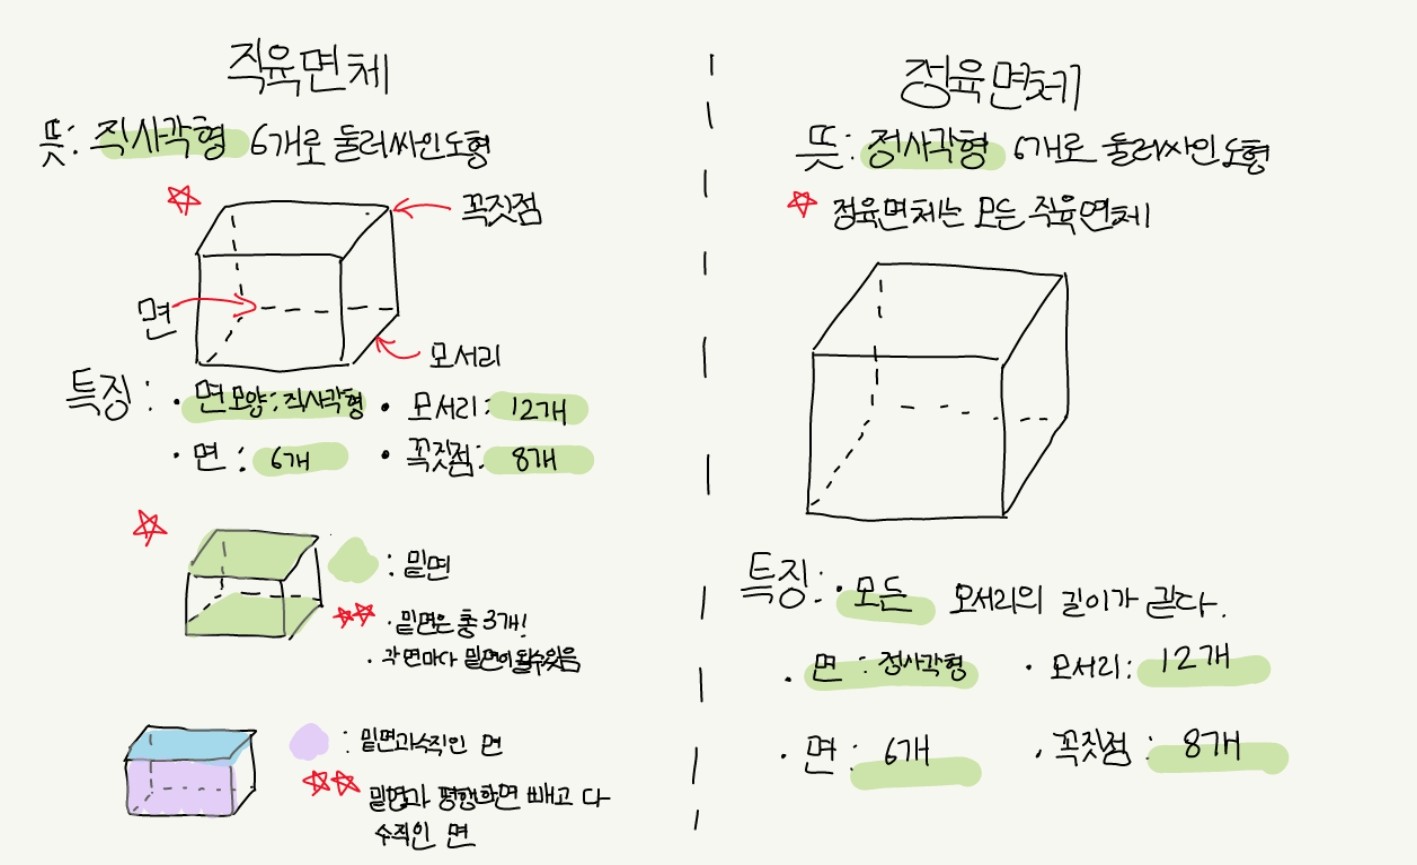 직육면체
뜻: 직사각형 6개로 둘러싸인도형
꼭짓점
면
모서리
특징: · 면모양: 직사각형 · 모서리: 12개
· 면: 6개 · 꼭짓점: 8개
: 밑면
· 밑면은 총 3개!
· 각 면마다 밑면이 될수있음
: 밑면과수직인 면
밑면과 평행한면 빼고 다
수직인 면
정육면체
뜻: 정사각형 6개로 둘러싸인 도형
정육면체는 모든 직육면체
특징: · 모든 모서리의 길이가 같다.
· 면: 정사각형 · 모서리: 12개
· 면: 6개 · 꼭짓점: 8개